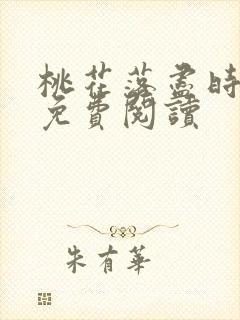 桃花落盡時
免費閱讀
朱有華